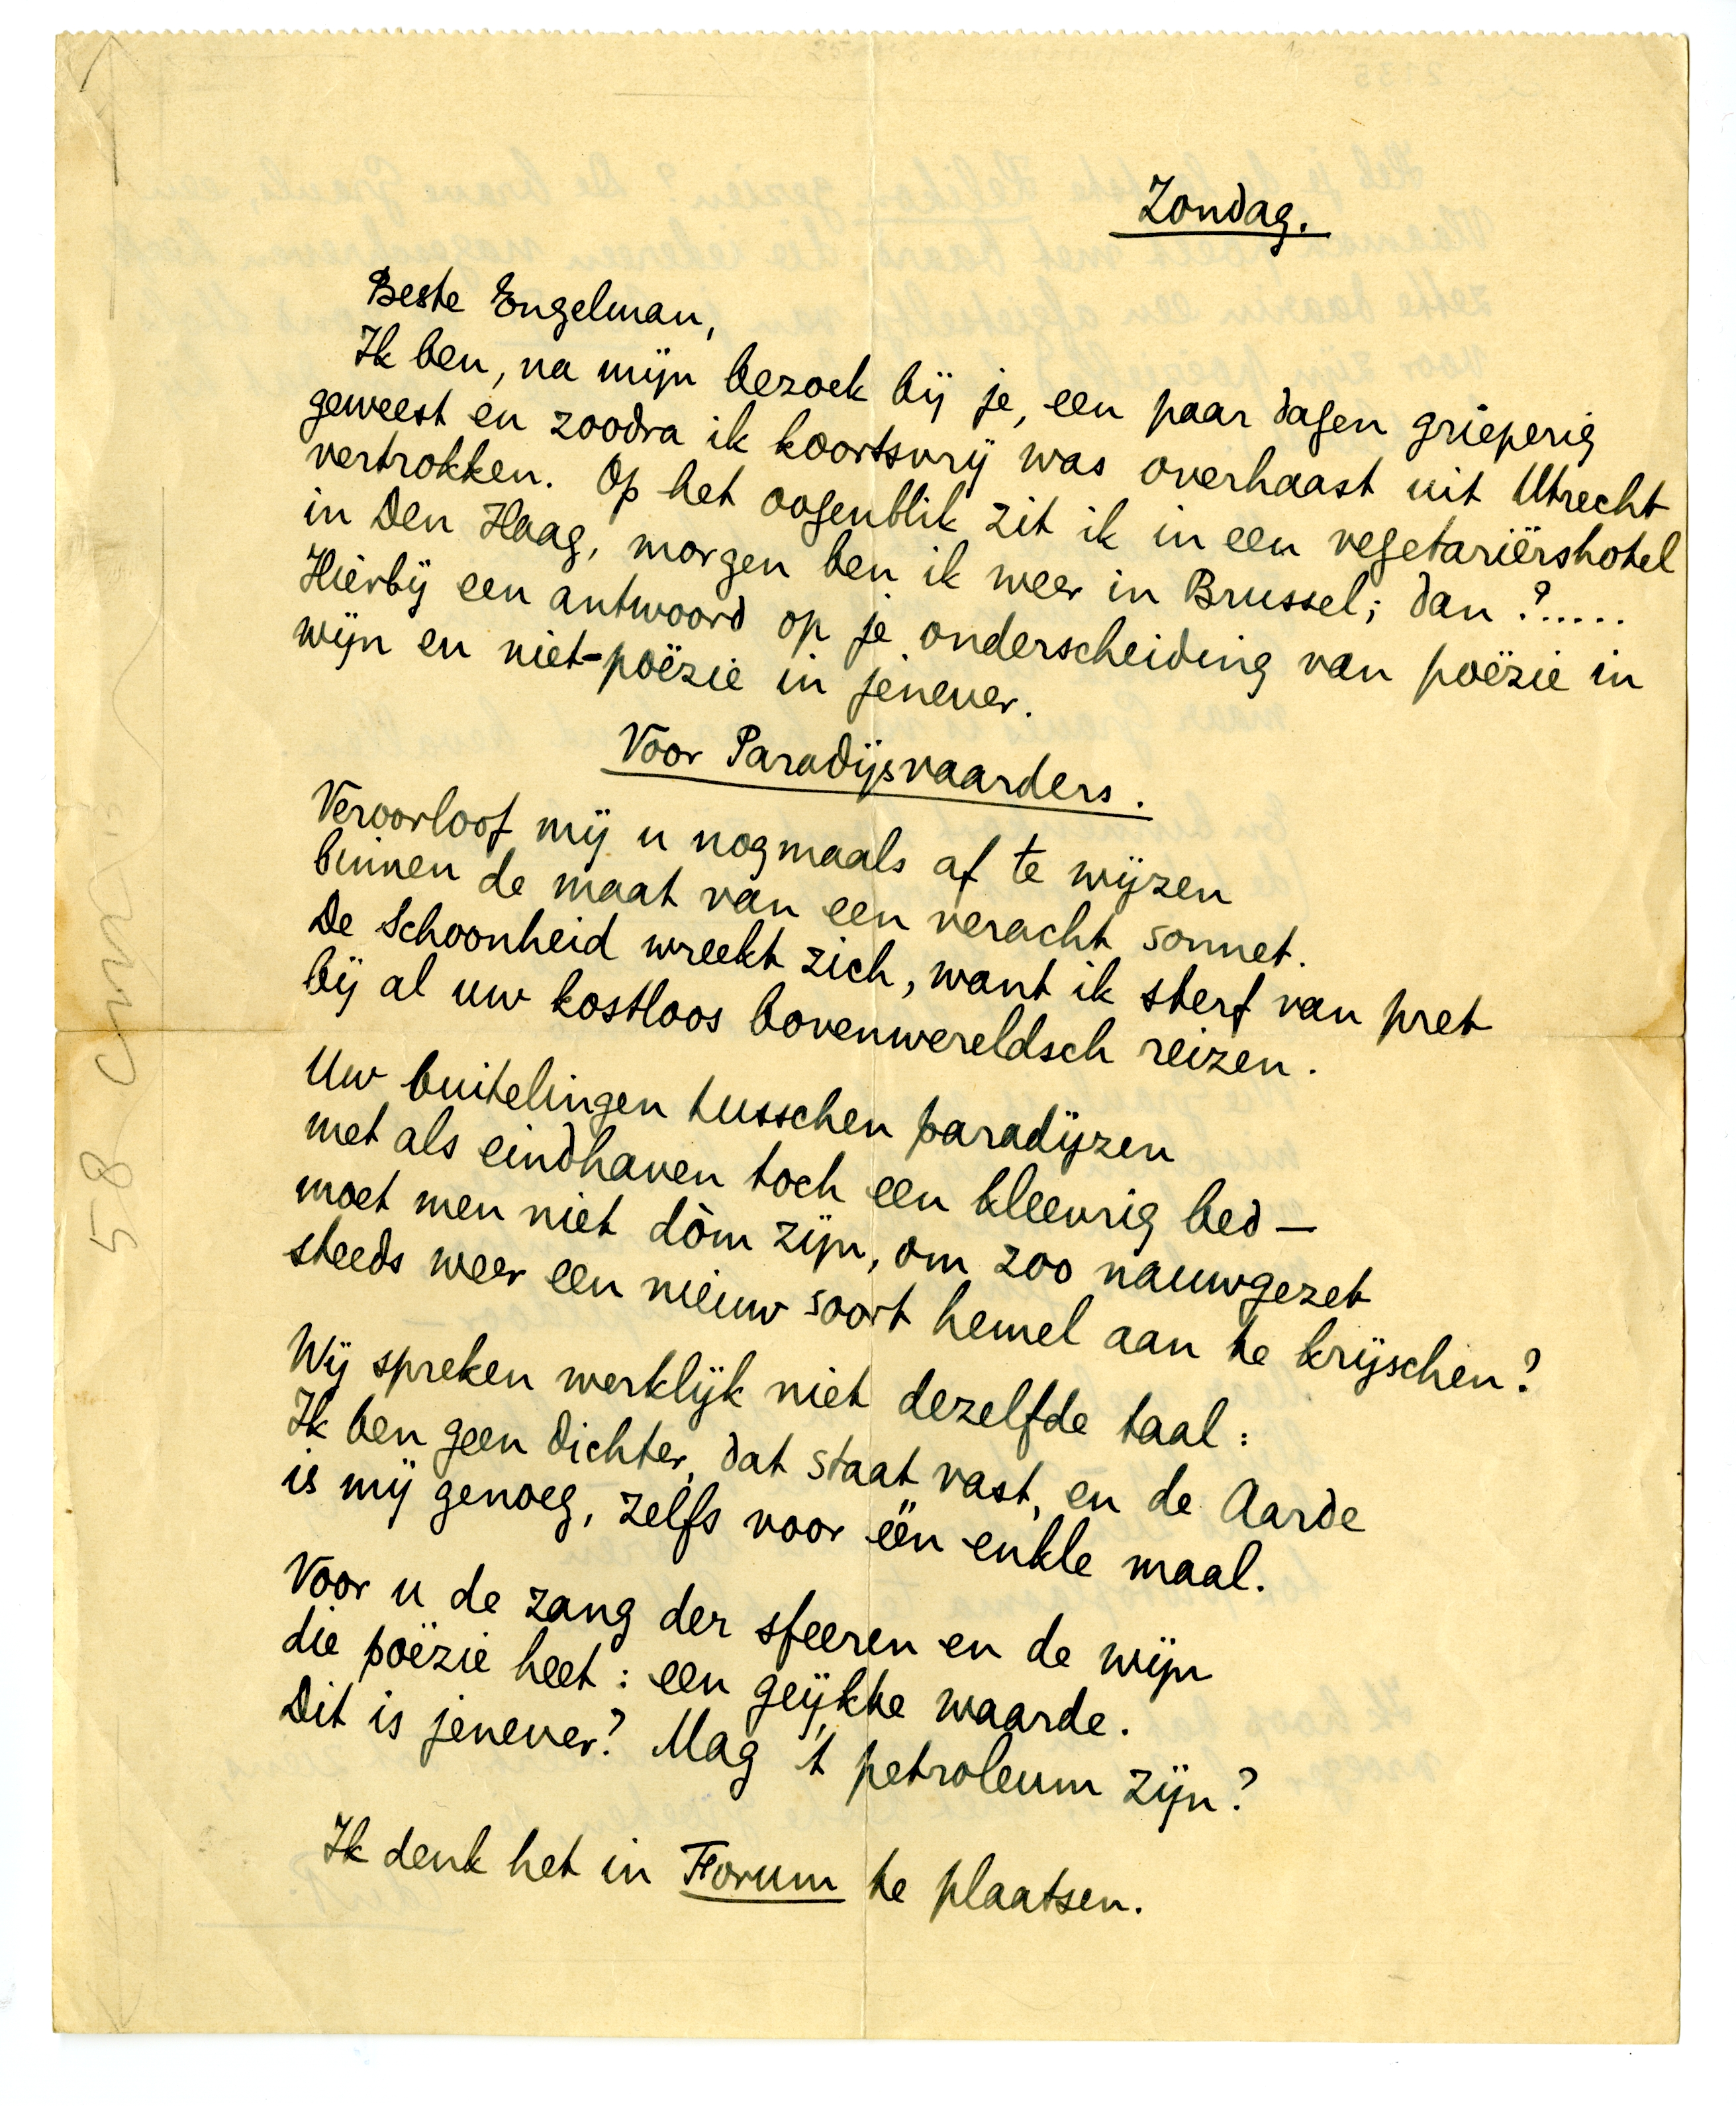 Zondag.
Beste Engelman,
Ik ben, na mijn bezoek bij je, een paar dagen grieperig
geweest en zoodra ik koortsvrij was overhaast uit Utrecht
vertrokken. Op het oogenblik zit ik in een vegetariërshotel
in Den Haag, morgen ben ik weer in Brussel; dan ?.....
Hierbij een antwoord op je onderscheiding van poëzie in
wijn en niet-poëzie in jenever.
Voor Paradijsvaarders.
Veroorloof mij u nogmaals af te wijzen
binnen de maat van een veracht sonnet.
De Schoonheid wreekt zich, want ik sterf van pret
bij al uw kostloos bovenwereldsch reizen.
Uw buitelingen tusschen paradijzen
met als eindhaven toch een kleevrig bed —
moet men niet dòm zijn, om zoo nauwgezet
steeds weer een nieuw soort hemel aan te krijschen?
Wij spreken werklijk niet dezelfde taal:
Ik ben geen dichter, dat staat vast, en de Aarde
is mij genoeg, zelfs voor één enkle maal.
Voor u de zang der sfeeren en de wijn
die poëzie heet: een geijkte waarde.
Dit is jenever? Mag 't petroleum zijn?
Ik denk het in Forum te plaatsen.
58